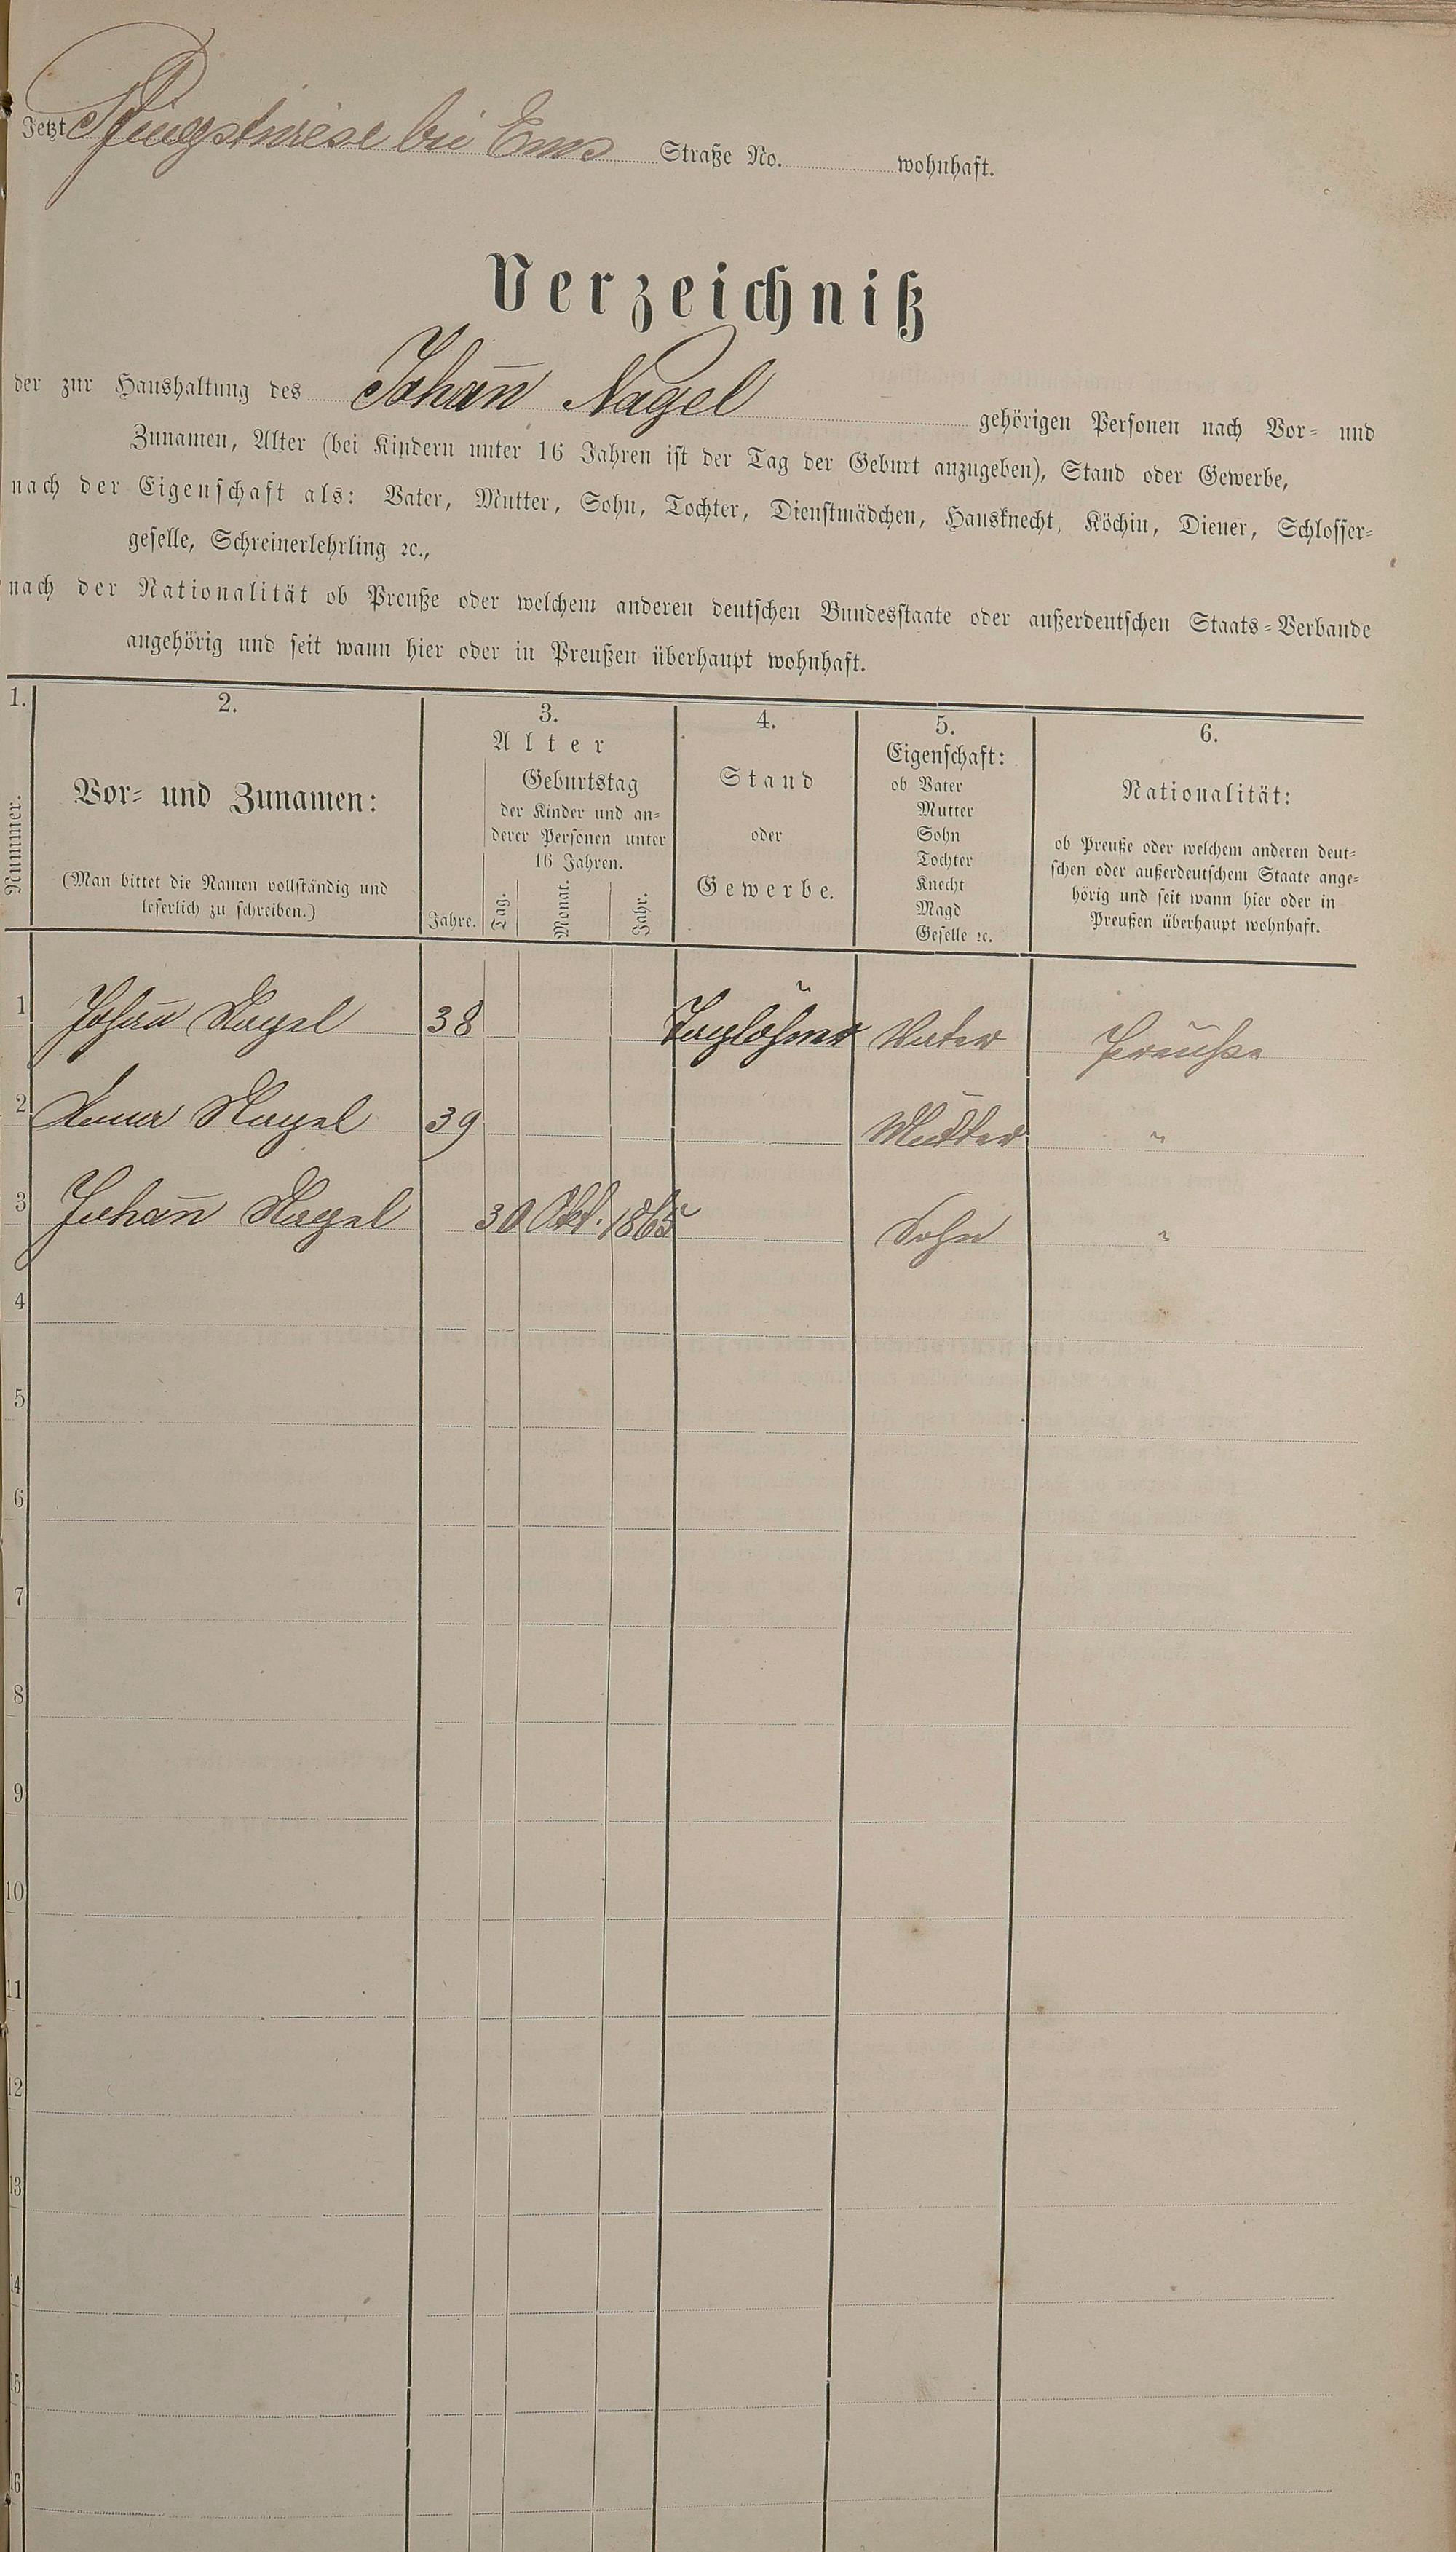 Jetzt Pfingstwiese bei Ems Straße No. wohnhaft.
Verzeichniß
der zur Haushaltung des Johan̄ Nagel gehörigen Personen nach Vor- und
Zunamen, Alter (bei Kindern unter 16 Jahren ist der Tag der Geburt anzugeben), Stand oder Gewerbe,
nach der Eigenschaft als: Vater, Mutter, Sohn, Tochter, Dienstmädchen, Hausknecht, Köchin, Diener, Schlosser-
geselle, Schreinerlehrling ꝛc.,
nach der Nationalität ob Preuße oder welchem anderen deutschen Bundesstaate oder außerdeutschen Staats-Verbande
angehörig und seit wann hier oder in Preußen überhaupt wohnhaft.
1. 2. 3. 4. 5. 6.
Nummer.
Vor- und Zunamen:
(Man bittet die Namen vollständig und
leserlich zu schreiben.)
Alter
Geburtstag
der Kinder und an-
derer Personen unter
16 Jahren.
Jahre. Tag. Monat. Jahr.
Stand
oder
Gewerbe.
Eigenschaft:
ob Vater
Mutter
Sohn
Tochter
Knecht
Magd
Geselle ꝛc.
Nationalität:
ob Preuße oder welchem anderen deut-
schen oder außerdeutschem Staate ange-
hörig und seit wann hier oder in
Preußen überhaupt wohnhaft.
1 Johan̄ Nagel 38 Taglöhner Vater Preuße
2 Anna Nagel 39 Mutter "
3 Johan̄ Nagel 30 Okt. 1865 Sohn "
4
5
6
7
8
9
10
11
12
13
14
15
16